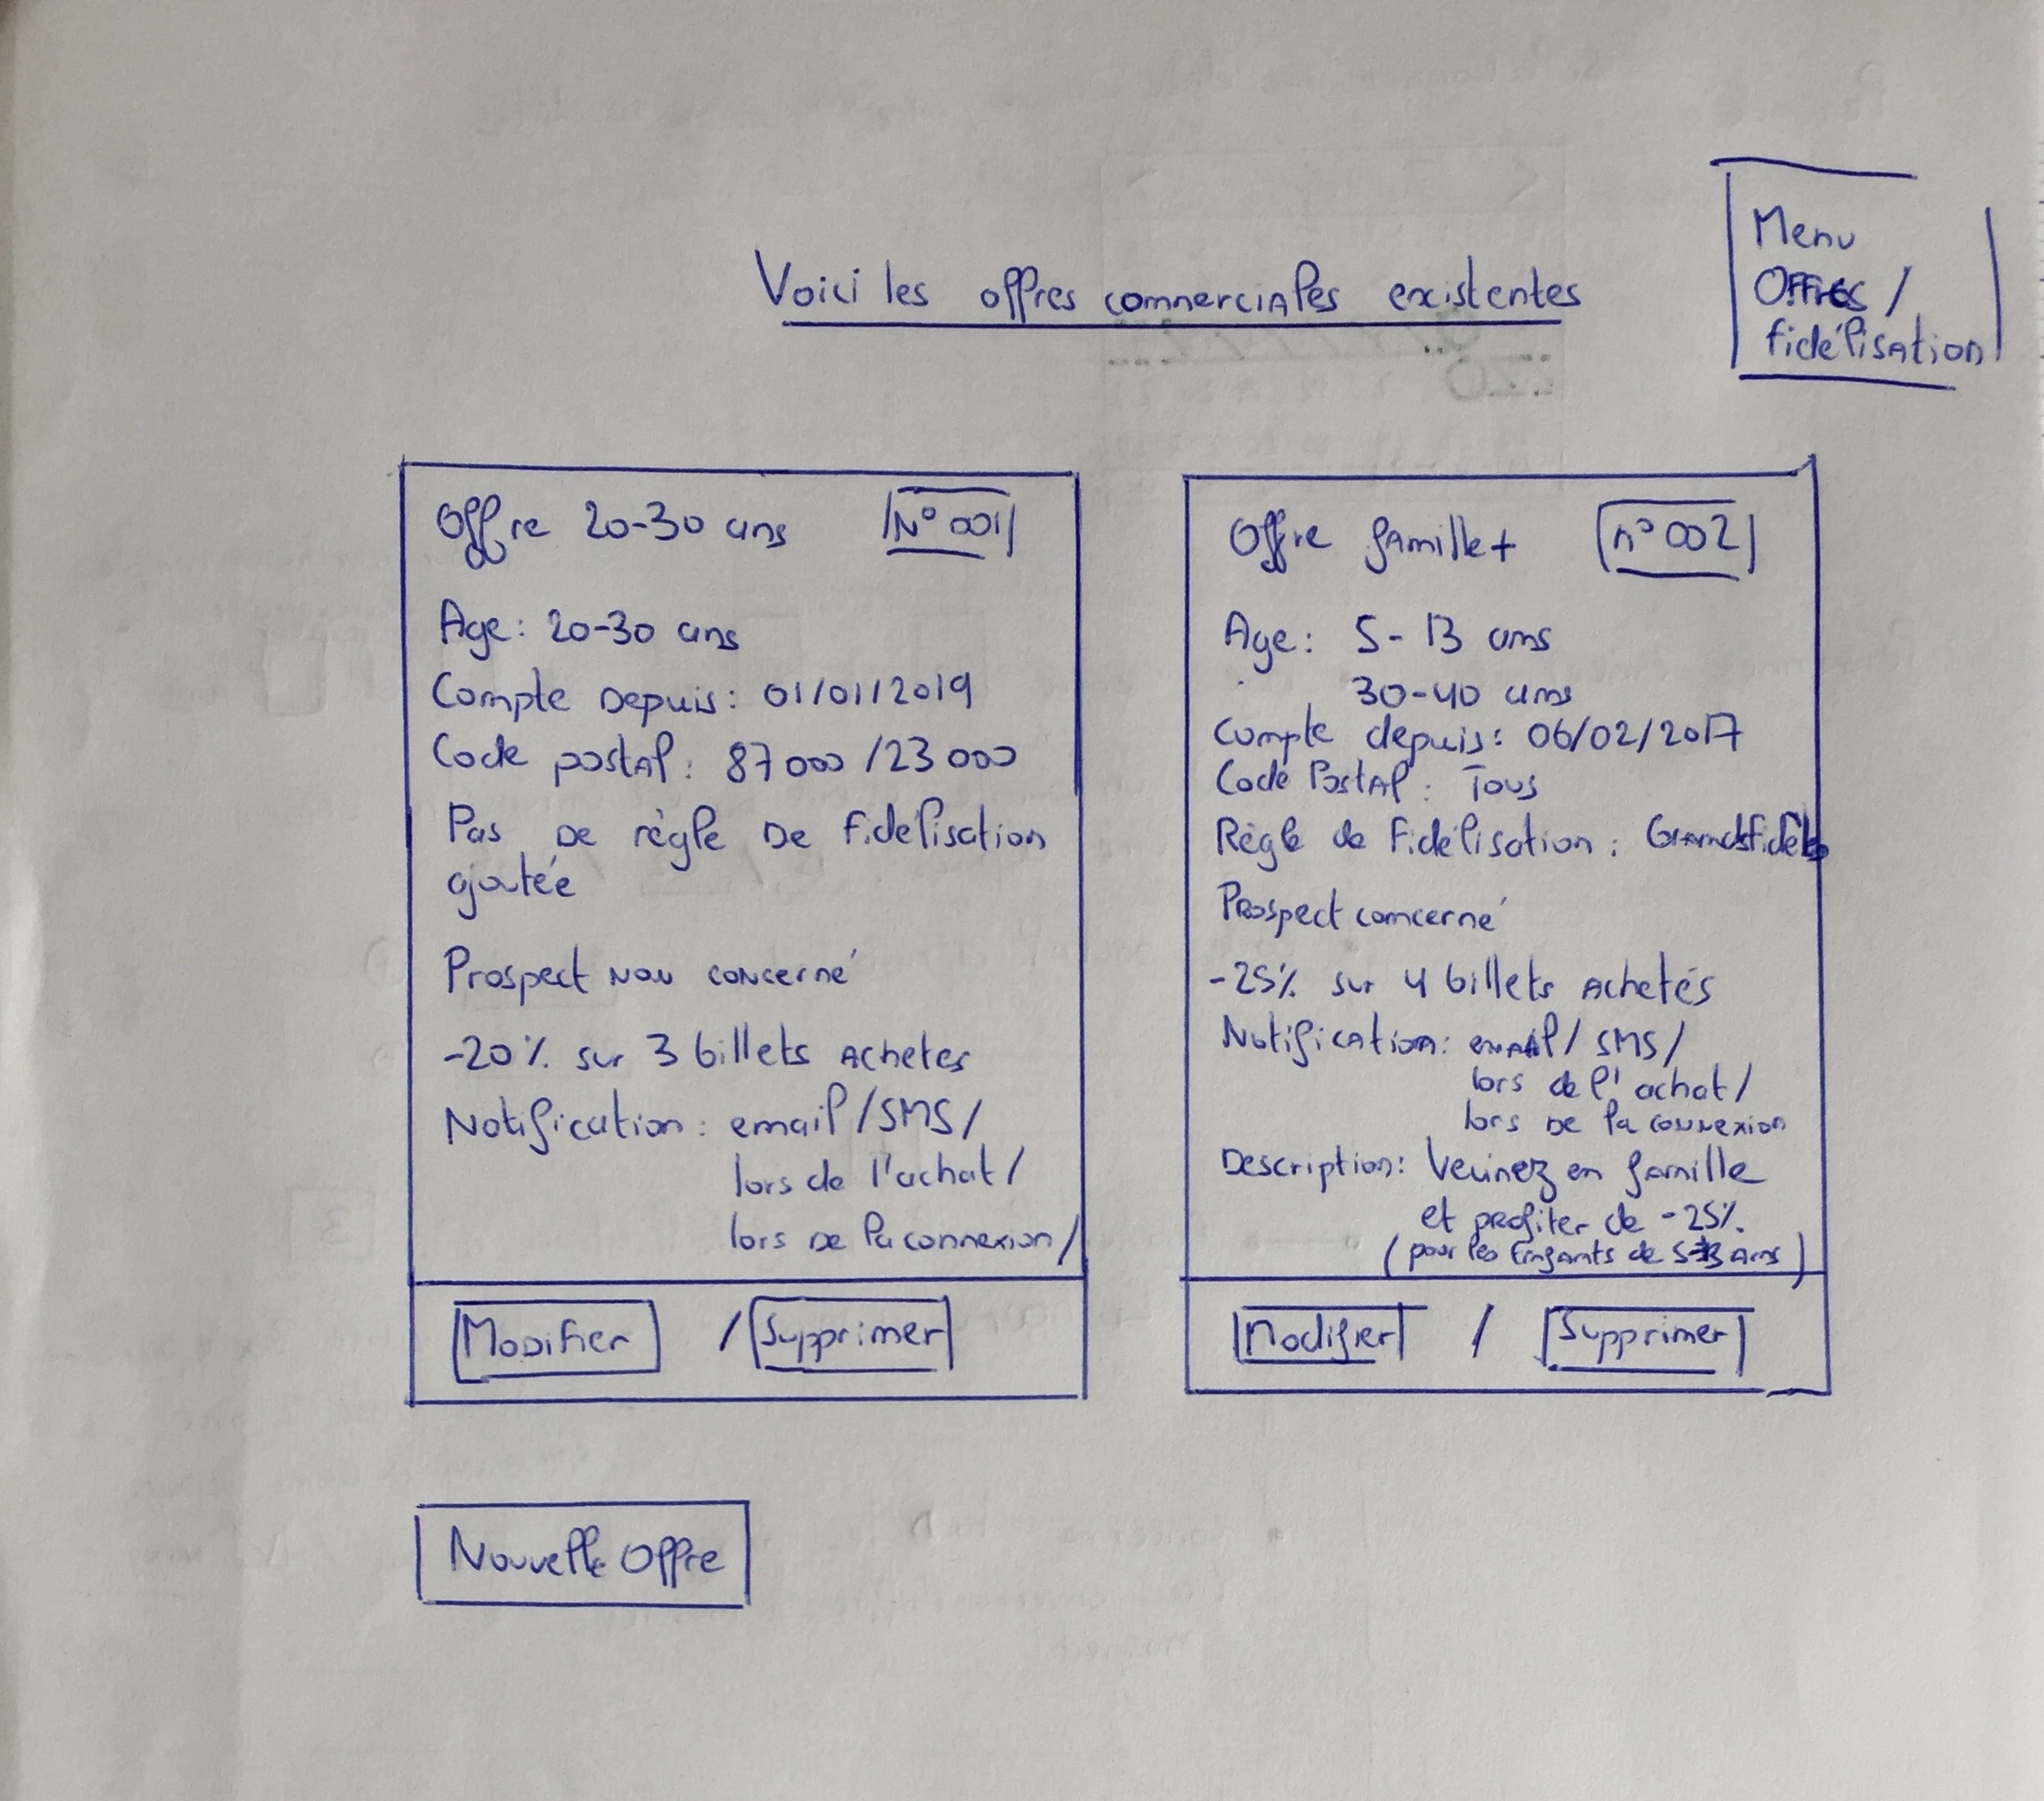 Menu
Offres /
fidélisation
Voici les offres commerciales existentes
Offre 20-30 ans N° 001
Age: 20-30 ans
Compte Depuis: 01/01/2019
Code postal: 87000 /23000
Pas De règle De fidélisation
ajoutée
Prospect non concerné
-20% sur 3 billets achetes
Notification: email/SMS/
lors de l'achat/
lors de la connexion/
Modifier / Supprimer
Offre famille+ n° 002
Age: 5-13 ans
30-40 ans
Compte depuis: 06/02/2017
Code Postal: Tous
Règle de fidélisation: Grandsfidèles
Prospect concerné
-25% sur 4 billets achetés
Notification: email/ SMS/
lors de l'achat/
lors de la connexion
Description: Veuinez en famille
et profiter de -25%
(pour les Enfants de 5-13 ans)
Modifier / Supprimer
Nouvelle Offre